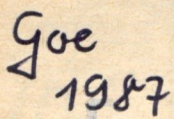 Goe
1987